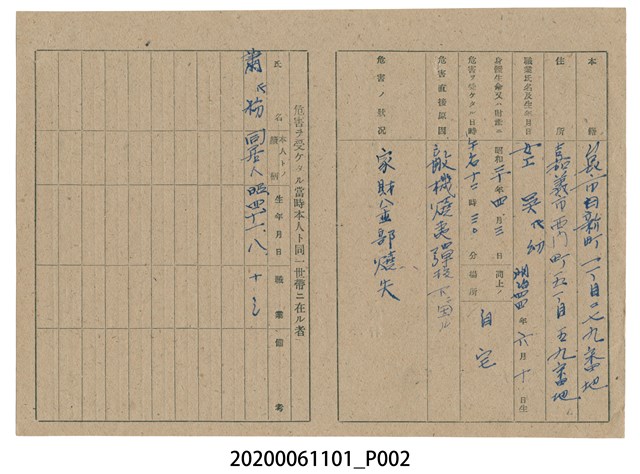 本籍 嘉義市白新町一丁目二七九番地
住所 嘉義市西門町五丁目五九番地
職業氏名及生年月日 女工 吳氏幼 明治四四年六月十日生
身體生命又ハ財產ニ危害ヲ受ケタル日時 昭和二十年四月三日 午后十二時三〇分 同上ノ場所 自宅
危害ノ直接原因 敵機燒夷彈投下ニ因ル
危害ノ狀況 家財全部燒失
危害ヲ受ケタル當時本人ト同一世帶ニ在ル者
氏名 本人トノ續柄 生年月日 職業 備考
蕭氏 同居人 昭四、十一、八
20200061101_P002